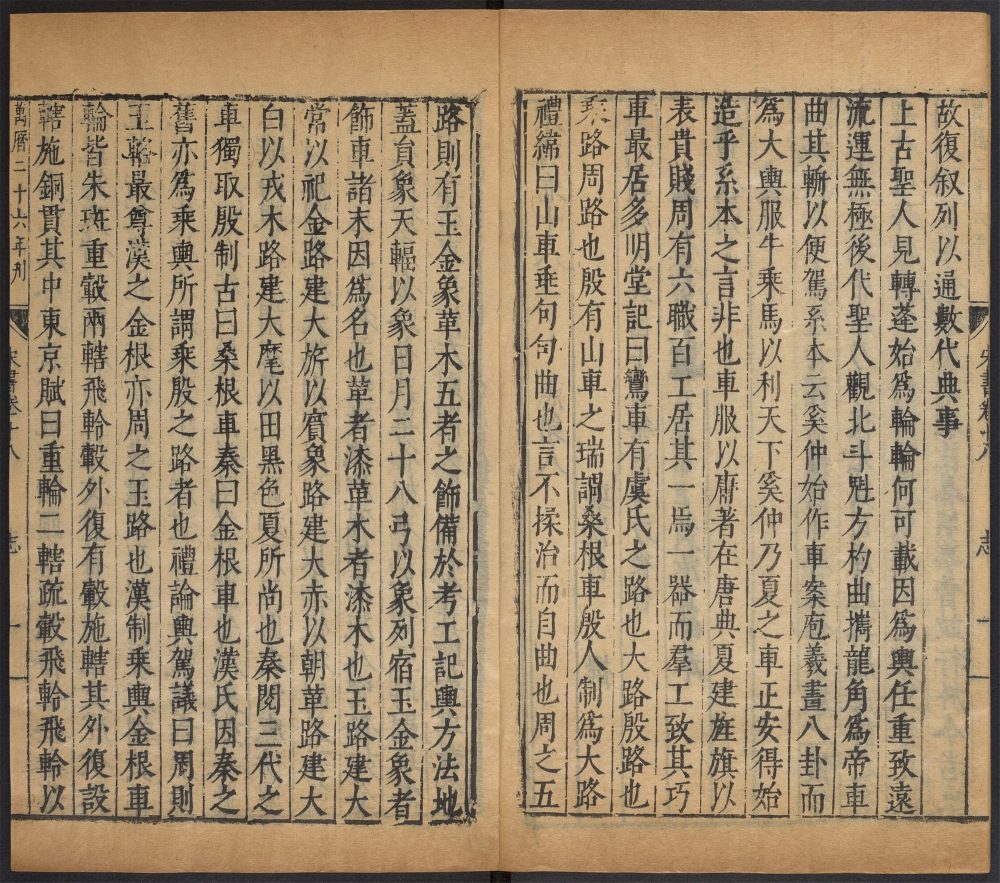 故復叙列以通數代典事
上古聖人見轉蓬始爲輪輪何可載因爲輿任重致遠
流運無極後代聖人觀北斗魁方杓曲攜龍角爲帝車
曲其輈以便駕系本云奚仲始作車案庖羲畫八卦而
爲大輿服牛乘馬以利天下奚仲乃夏之車正安得始
造乎系本之言非也車服以庸著在唐典夏建旌旗以
表貴賤周有六職百工居其一焉一器而羣工致其巧
車最居多明堂記曰鸞車有虞氏之路也大路殷路也
乘路周路也殷有山車之瑞謂桑根車殷人制爲大路
禮緯曰山車垂句句曲也言不揉治而自曲也周之五
路則有玉金象革木五者之飾備於考工記輿方法地
蓋員象天輻以象日月二十八弓以象列宿玉金象者
飾車諸末因爲名也革者漆革木者漆木也玉路建大
常以祀金路建大旂以賓象路建大赤以朝革路建大
白以戎木路建大麾以田黑色夏所尚也秦閱三代之
車獨取殷制古曰桑根車秦曰金根車也漢氏因秦之
舊亦爲乘輿所謂乘殷之路者也禮論輿駕議曰周則
玉輅最尊漢之金根亦周之玉路也漢制乘輿金根車
輪皆朱斑重轂兩轄飛軨轂外復有轂施轄其外復設
轄施銅貫其中東京賦曰重輪二轄疏轂飛軨飛軨以
萬曆二十六年刋
宋書卷十八 志 一